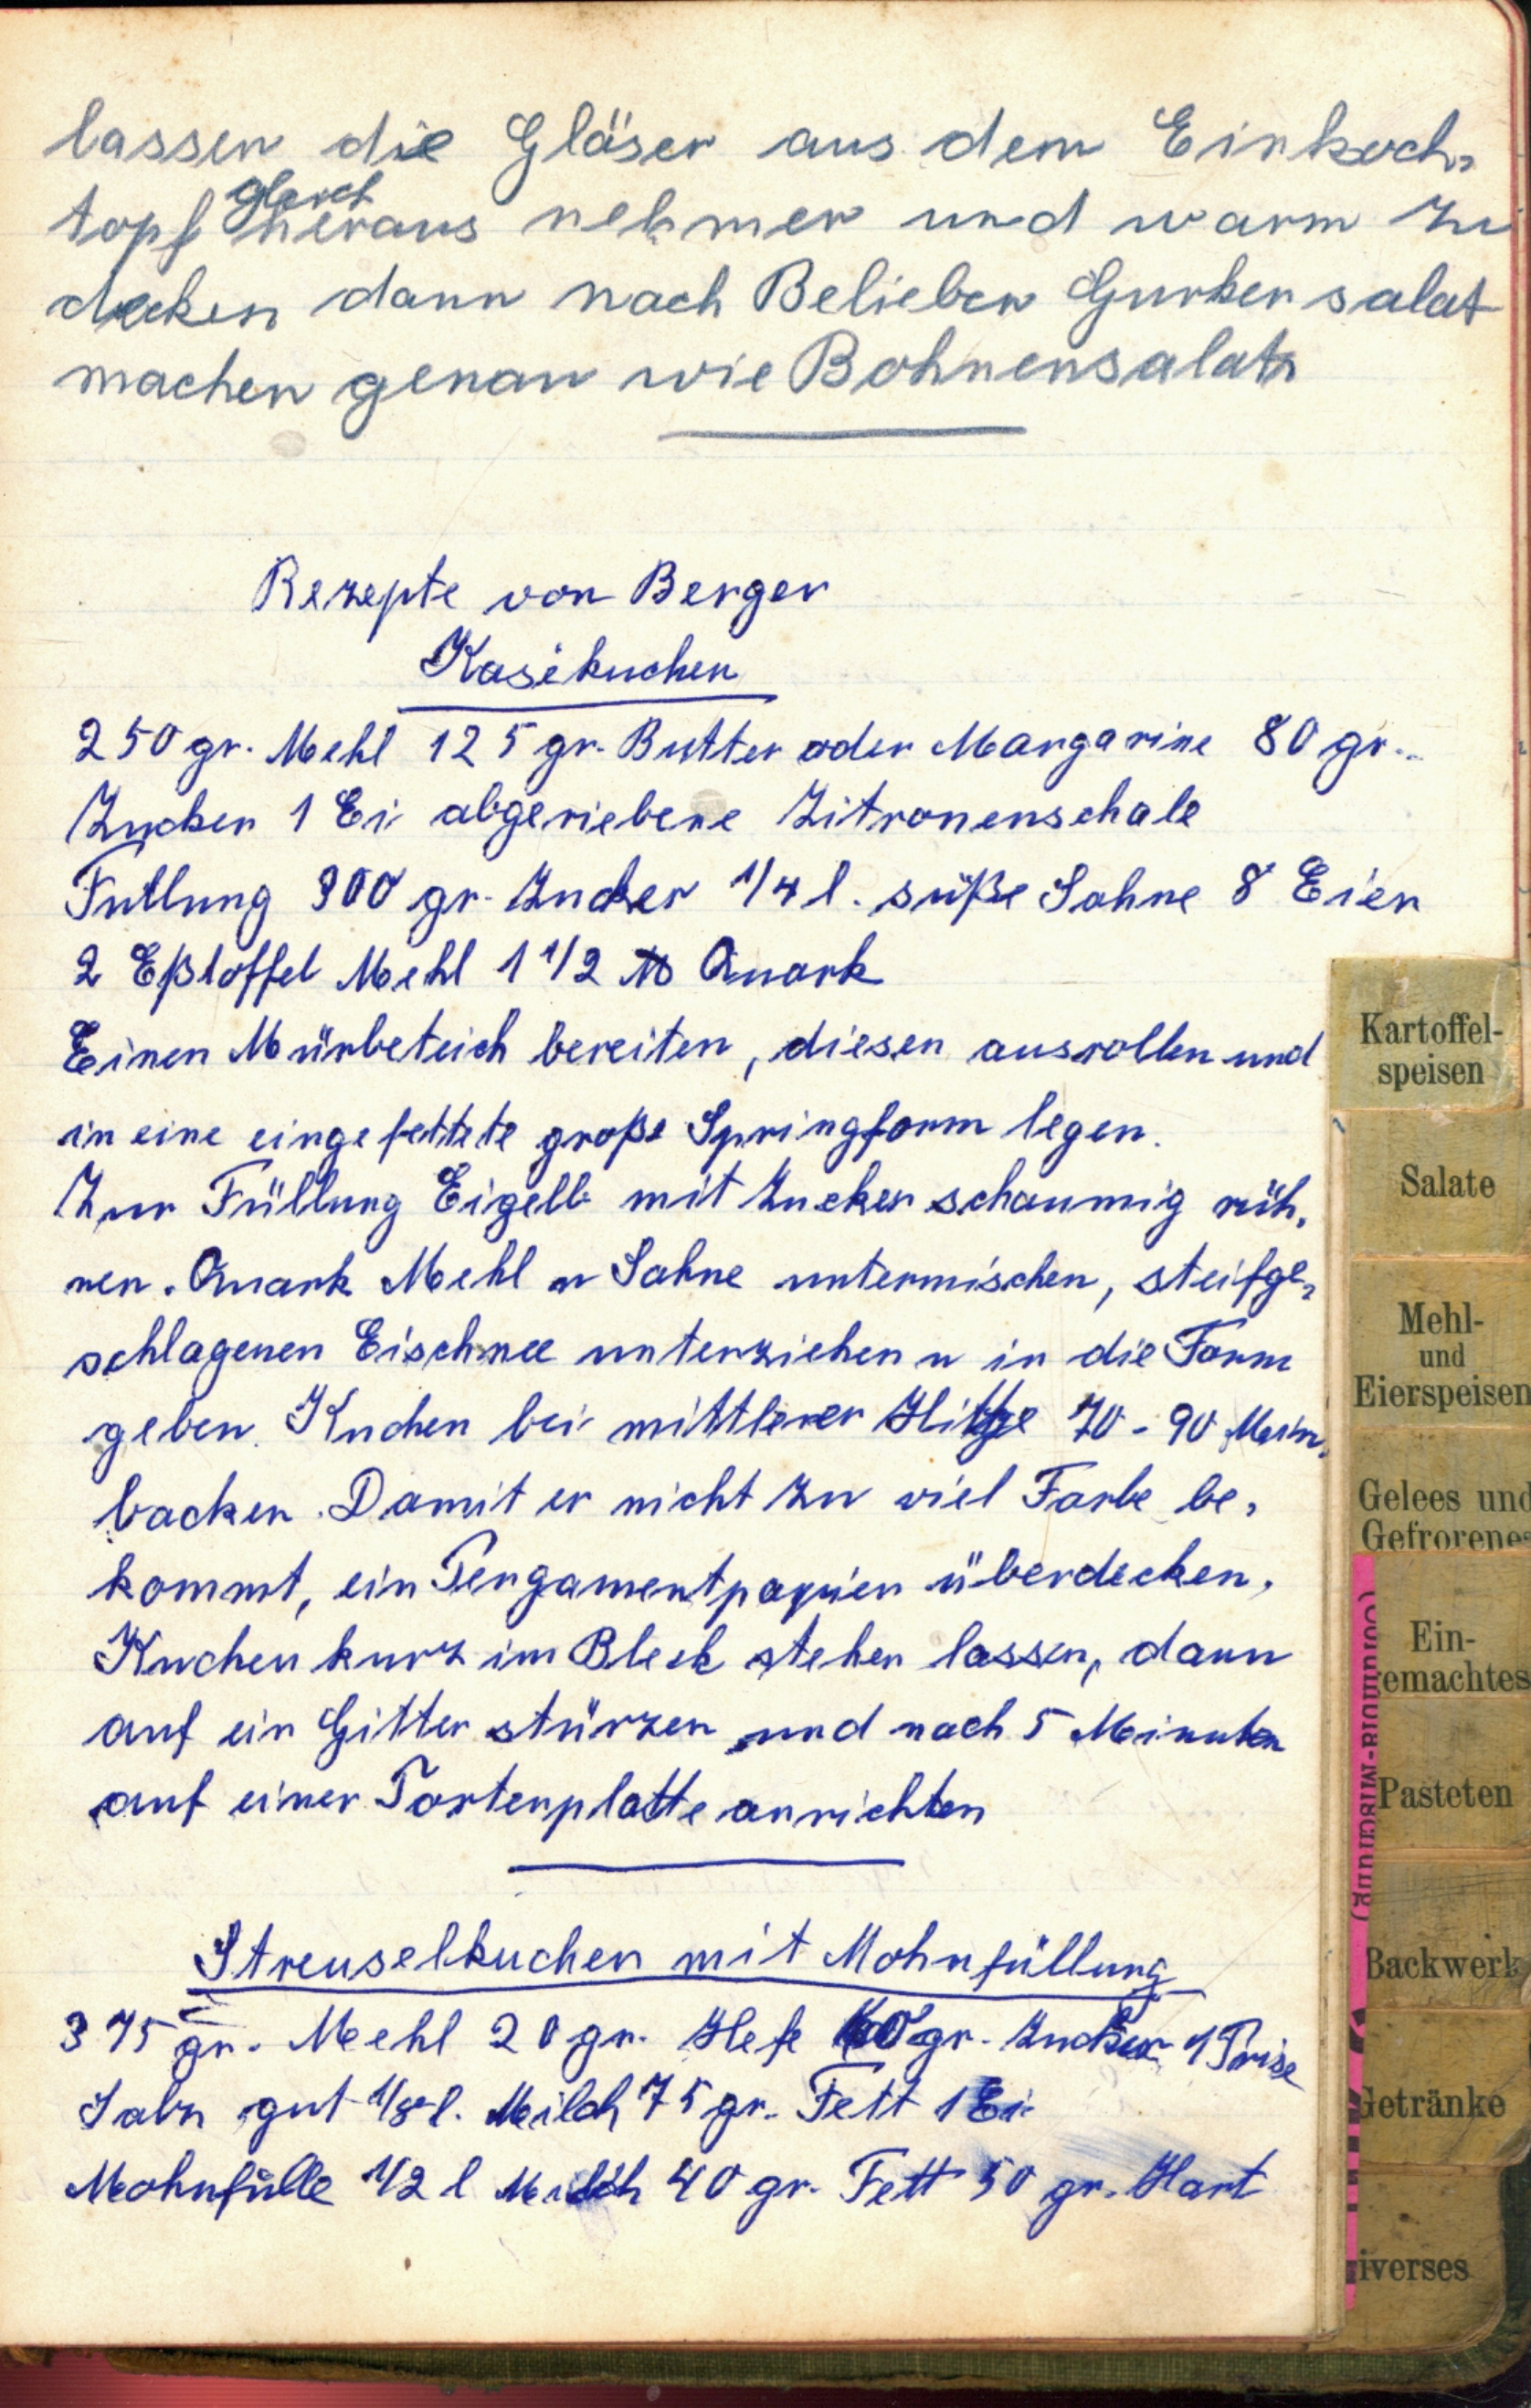 lassen die Gläser aus dem Einkoch-
topf gleich heraus nehmen und warm zu
decken dann nach Belieben Gurkensalat
machen genau wie Bohnensalat
Rezepte von Berger
Kasekuchen
250 gr. Mehl 125 gr. Butter oder Margarine 80 gr.
Zucker 1 Ei abgeriebene Zitronenschale
Fullung 300 gr. Zucker 1/4 l. süße Sahne 8 Eier
2 Eßloffel Mehl 1 1/2 ℔ Quark
Einen Mürbeteich bereiten, diesen ausrollen und
in eine eingefettete große Springform legen.
Zur Füllung Eigelb mit Zucker schaumig rüh-
ren. Quark Mehl u Sahne untermischen, steifge-
schlagenen Eischnee unterziehen u in die Form
geben. Kuchen bei mittlerer Hitze 70 - 90 Min.
backen. Damit er nicht zu viel Farbe be-
kommt, ein Pergamentpapier überdecken.
Kuchen kurz im Blech stehen lassen, dann
auf ein Gitter stürzen und nach 5 Minuten
auf einer Tortenplatte anrichten
Streuselkuchen mit Mohnfüllung
375 gr. Mehl 20 gr. Hefe gr. Zucker 1 Prise
Salz gut 1/8 l. Milch 75 gr. Fett 1 Ei
Mohnfülle 1/2 l Milch 40 gr. Fett 50 gr. Hart
Kartoffel-
speisen
Salate
Mehl-
und
Eierspeisen
Gelees und
Gefrorenes
Ein-
gemachtes
Pasteten
Backwerk
Getränke
iverses
-Mischung)